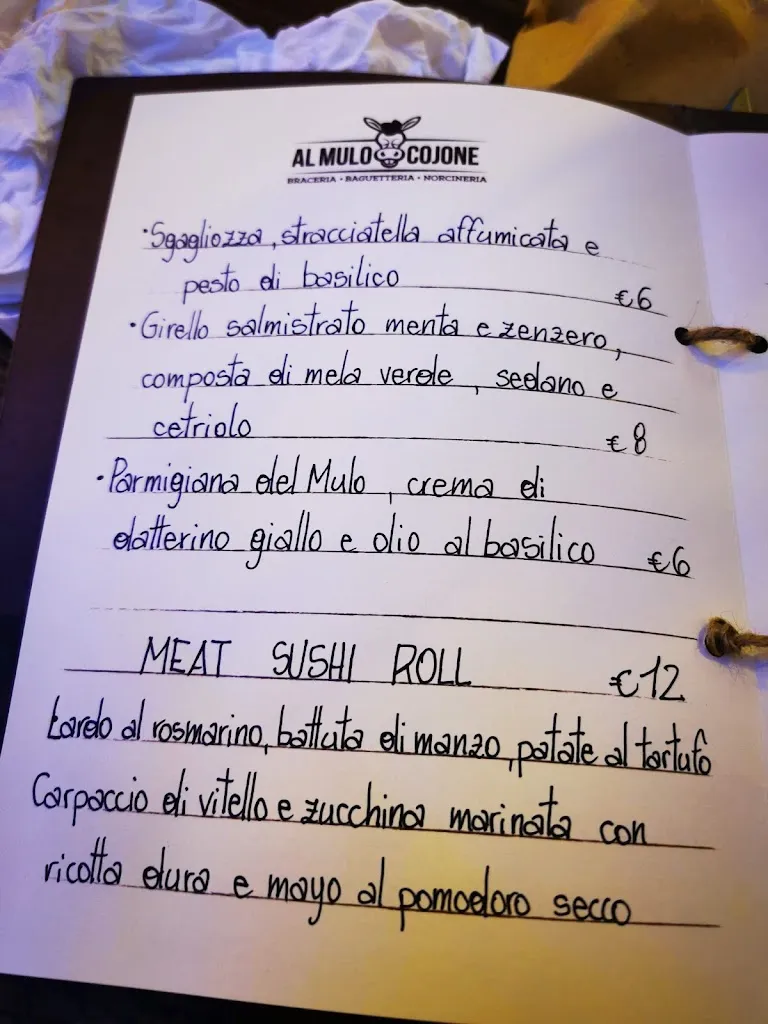 AL MULO COJONE
BRACERIA • BAGUETTERIA • NORCINERIA
•Sgagliozza, stracciatella affumicata e
pesto di basilico €6
•Girello salmistrato menta e zenzero,
composta di mela verde, sedano e
cetriolo €8
•Parmigiana del Mulo, crema di
datterino giallo e olio al basilico €6
MEAT SUSHI ROLL €12
Lardo al rosmarino, battuta di manzo, patate al tartufo
Carpaccio di vitello e zucchina marinata con
ricotta dura e mayo al pomodoro secco